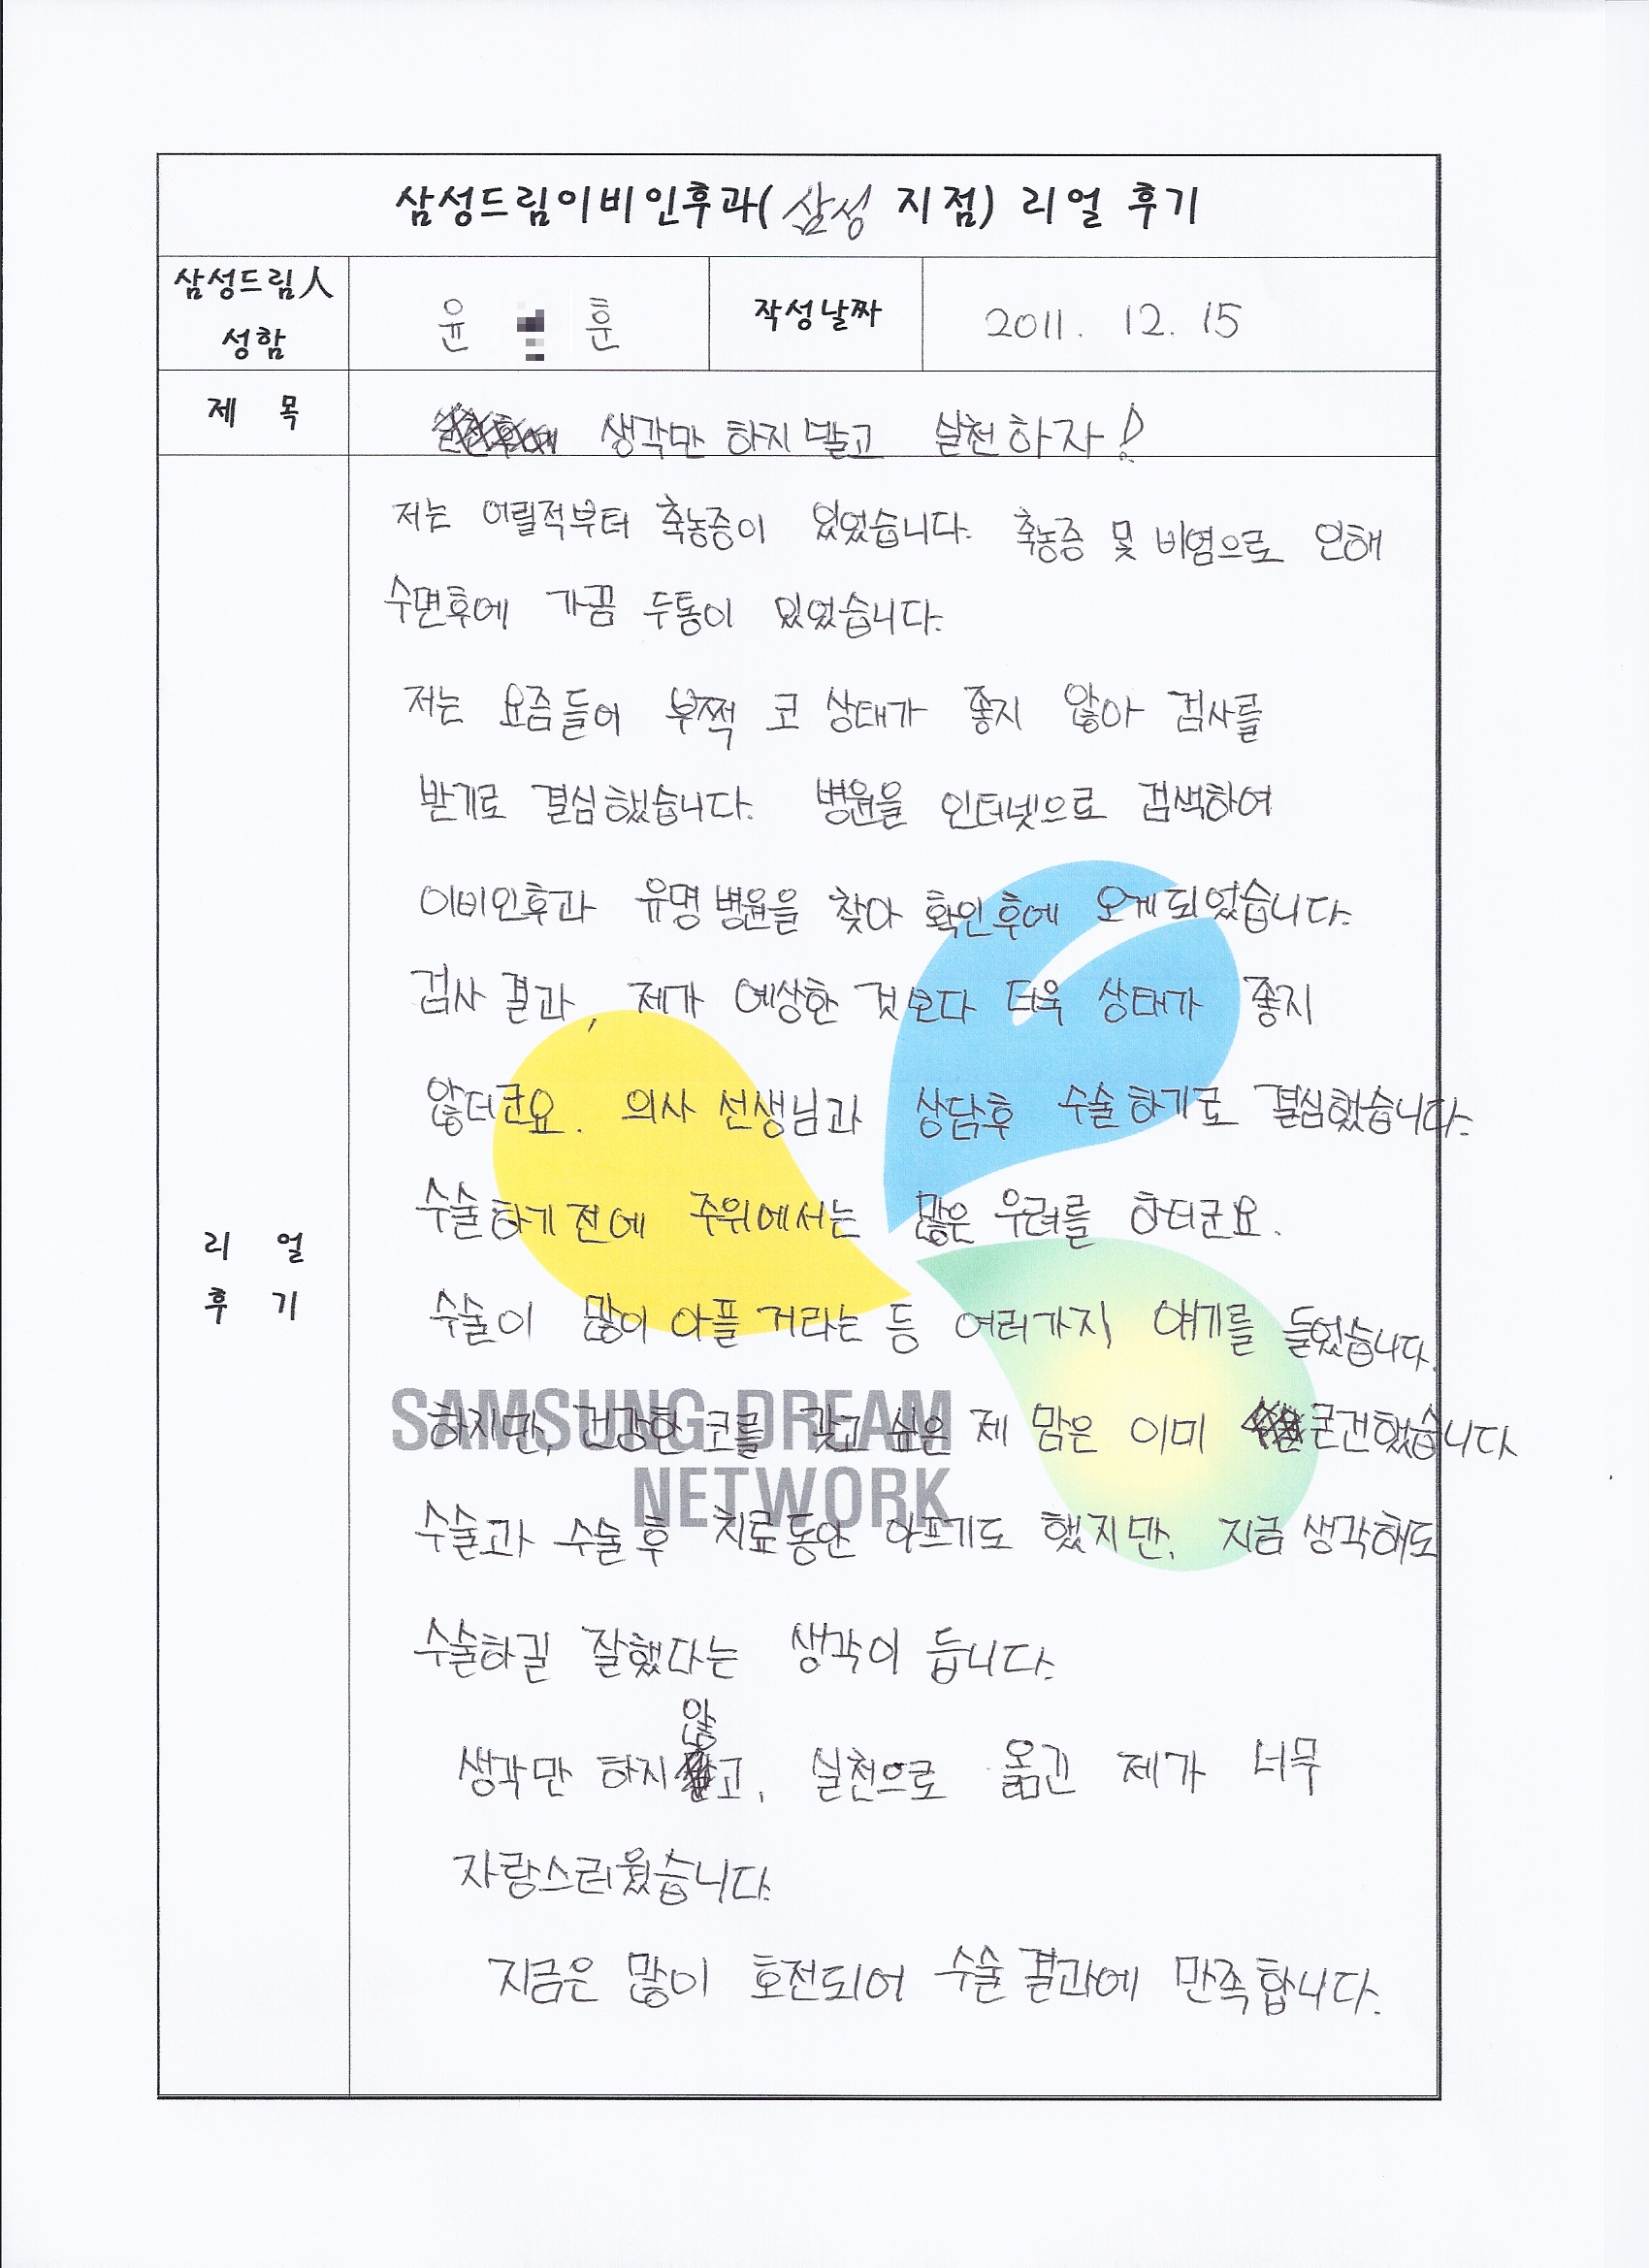 삼성드림이비인후과(삼성 지점) 리얼 후기
삼성드림人
성함
윤 훈
작성날짜
2011. 12. 15
제 목
생각만 하지 말고 실천하자!
리 얼
후 기
저는 어릴적부터 축농증이 있었습니다. 축농증 및 비염으로 인해
수면후에 가끔 두통이 있었습니다.
저는 요즘들어 부쩍 코 상태가 좋지 않아 검사를
받기로 결심했습니다. 병원을 인터넷으로 검색하여
이비인후과 유명병원을 찾아 확인후에 오게되었습니다.
검사 결과, 제가 예상한 것보다 더욱 상태가 좋지
않더군요. 의사 선생님과 상담후 수술하기로 결심했습니다.
수술하기 전에 주위에서는 많은 우려를 하더군요.
수술이 많이 아플 거라는 등 여러가지 얘기를 들었습니다.
하지만, 건강한 코를 갖고 싶은 제 맘은 이미 굳건했습니다
수술과 수술 후 치료동안 아프기도 했지만, 지금 생각해도
수술하길 잘했다는 생각이 듭니다.
생각만 하지 않고, 실천으로 옮긴 제가 너무
자랑스러웠습니다.
지금은 많이 호전되어 수술 결과에 만족합니다.
SAMSUNG DREAM
NETWORK